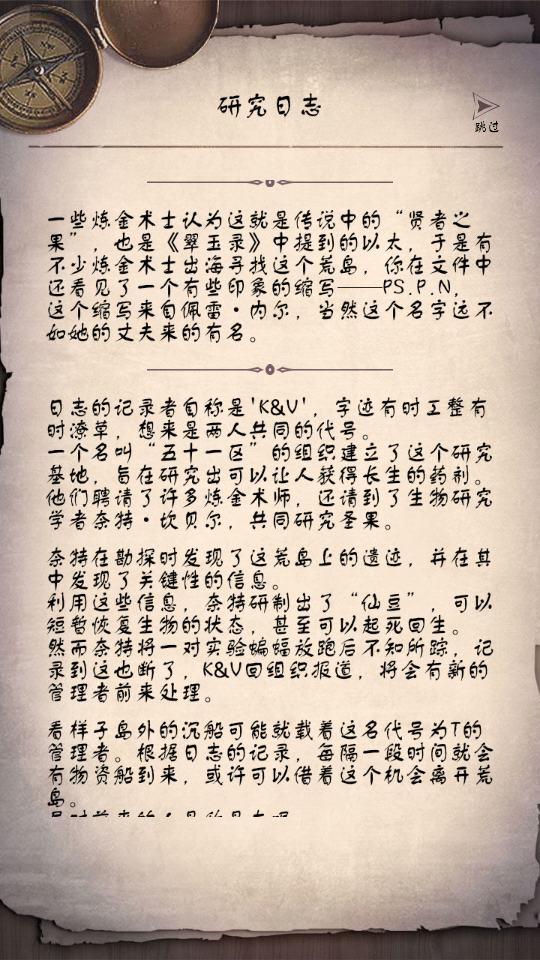 研究日志
跳过
一些炼金术士认为这就是传说中的“贤者之
果”，也是《翠玉录》中提到的以太，于是有
不少炼金术士出海寻找这个荒岛，你在文件中
还看见了一个有些印象的缩写——PS.P.N，
这个缩写来自佩雷·内尔，当然这个名字远不
如她的丈夫来的有名。
日志的记录者自称是'K&V'，字迹有时工整有
时潦草，想来是两人共同的代号。
一个名叫“五十一区”的组织建立了这个研究
基地，旨在研究出可以让人获得长生的药剂。
他们聘请了许多炼金术师，还请到了生物研究
学者奈特·坎贝尔，共同研究圣果。
奈特在勘探时发现了这荒岛上的遗迹，并在其
中发现了关键性的信息。
利用这些信息，奈特研制出了“仙豆”，可以
短暂恢复生物的状态，甚至可以起死回生。
然而奈特将一对实验蝙蝠放跑后不知所踪，记
录到这也断了，K&V回组织报道，将会有新的
管理者前来处理。
看样子岛外的沉船可能就载着这名代号为T的
管理者。根据日志的记录，每隔一段时间就会
有物资船到来，或许可以借着这个机会离开荒
岛。